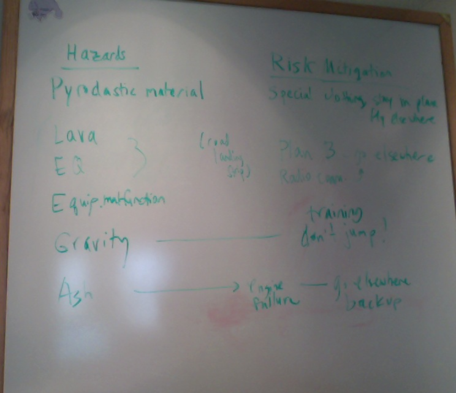 Hazards
Risk Mitigation
Pyroclastic material
Special clothing, stay in plane
fly elsewhere
Lava
EQ
Plan B elsewhere
Radio Comm.
Equip. malfunction
Gravity
training
don't jump!
Ash
engine failure
elsewhere
backup